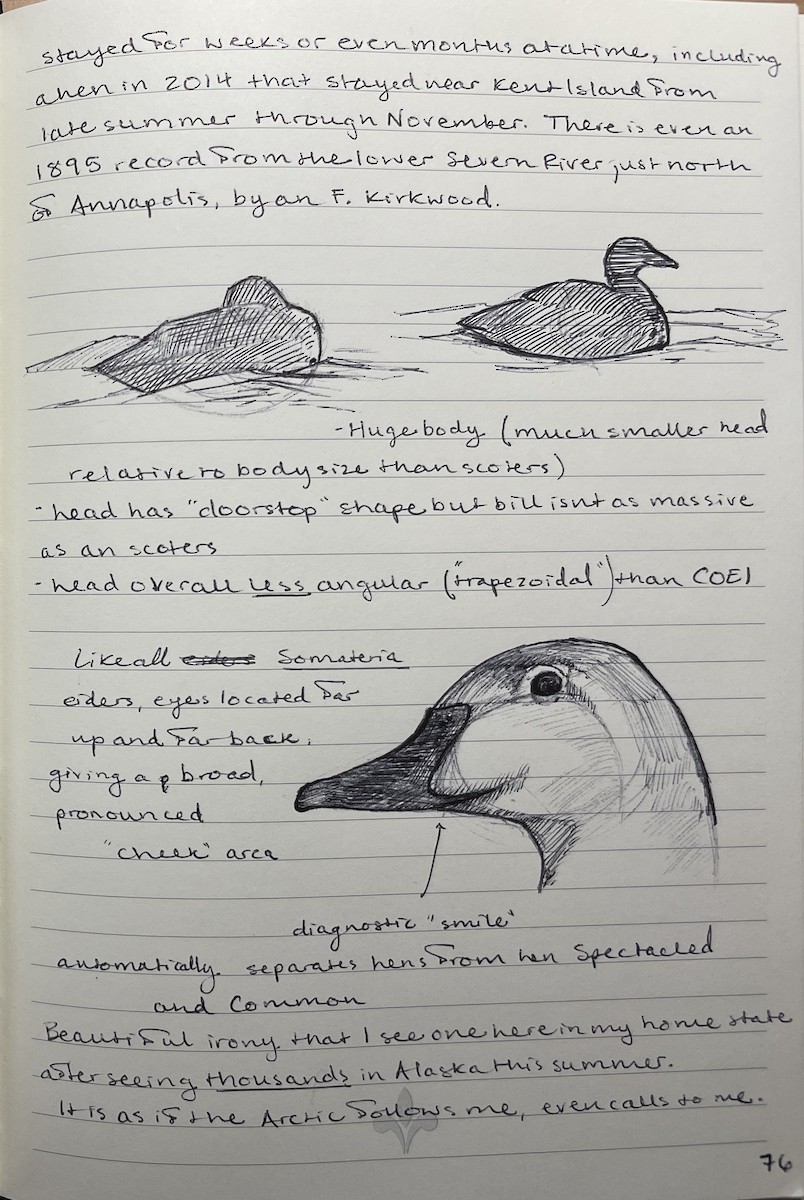 stayed for weeks or even months at a time, including
a hen in 2014 that stayed near Kent Island from
late summer through November. There is even an
1895 record from the lower Severn River just north
of Annapolis, by an F. Kirkwood.
-Huge body (much smaller head
relative to body size than scoters)
-head has "doorstop" shape but bill isnt as massive
as an scoters
-head overall less angular ("trapezoidal") than COEI
Like all eiders Somateria
eiders, eyes located far
up and far back,
giving a broad,
pronounced
"cheek" area
diagnostic "smile"
automatically separates hens from hen Spectacled
and Common
Beautiful irony that I see one here in my home state
after seeing thousands in Alaska this summer.
It is as if the Arctic follows me, even calls to me.
76